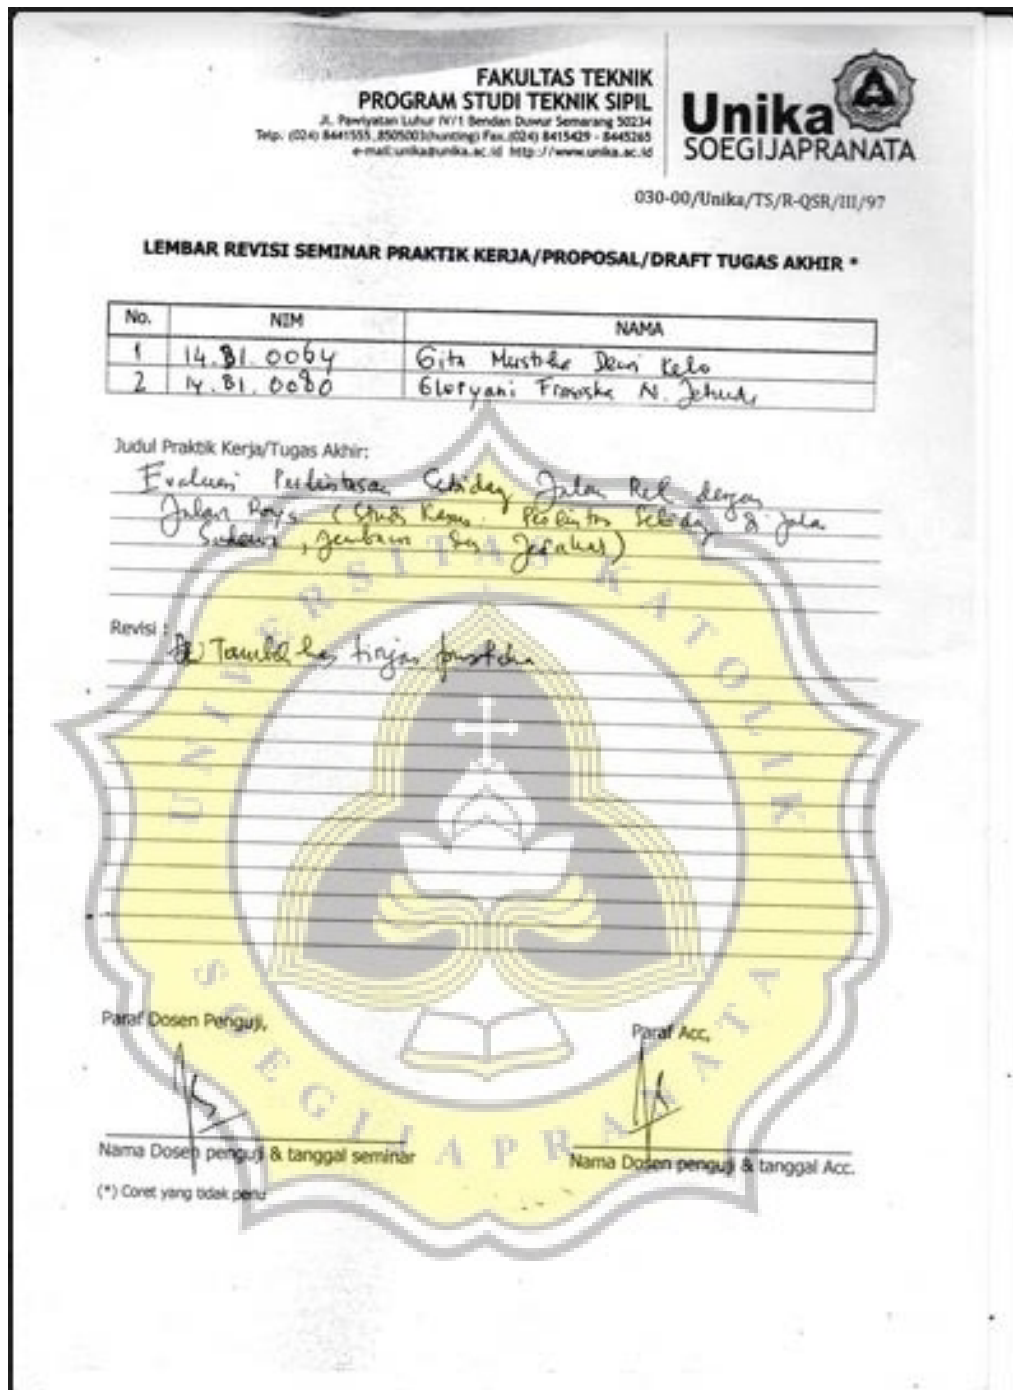 FAKULTAS TEKNIK
PROGRAM STUDI TEKNIK SIPIL
Jl. Pawiyatan Luhur IV/1 Bendan Duwur Semarang 50234
Telp. (024) 8441555, 8505003(hunting) Fax.(024) 8415429 - 8445265
e-mail:unika@unika.ac.id http://www.unika.ac.id
Unika
SOEGIJAPRANATA
030-00/Unika/TS/R-QSR/III/97
LEMBAR REVISI SEMINAR PRAKTIK KERJA/PROPOSAL/DRAFT TUGAS AKHIR *
No. NIM NAMA
1 14.B1.0064 Gita Dewi Kelo
2 14.B1.0080 Gloryani N.
Judul Praktik Kerja/Tugas Akhir:
Evaluasi Perlintasan Sebidang Jalan Rel dengan
Jalan Raya (Studi Kasus
Revisi :
tinjauan pustaka
UNIVERSITAS KATOLIK
SOEGIJAPRANATA
Paraf Dosen Penguji, Paraf Acc,
Nama Dosen penguji & tanggal seminar Nama Dosen penguji & tanggal Acc.
(*) Coret yang tidak perlu